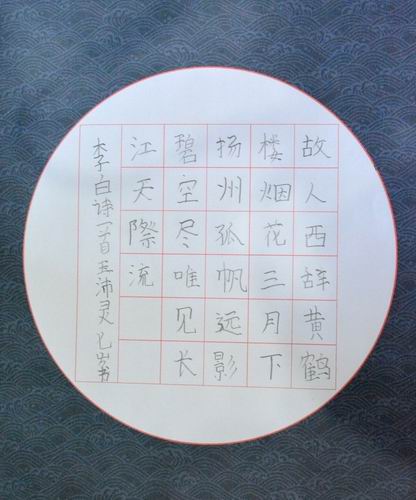 故人西辞黄鹤
楼烟花三月下
扬州孤帆远影
碧空尽唯见长
江天際流
李白诗一首沛灵书